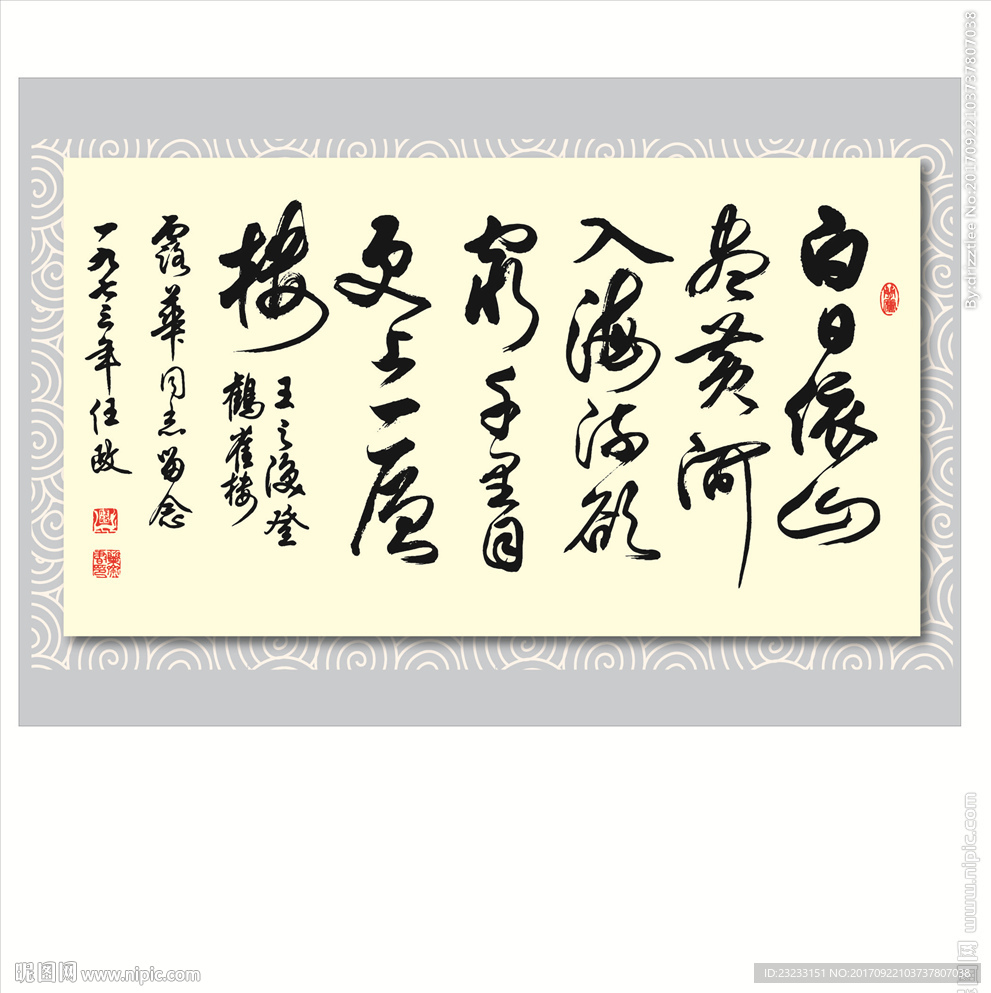 白日依山
尽黄河
入海流欲
穷千里目
更上一层
楼
王之涣登
鹳雀楼
露华同志留念
一九七三年任政
By:drizztlee No.20170922103737807038
www.nipic.com
昵图网 www.nipic.com
ID:23233151 NO:20170922103737807038